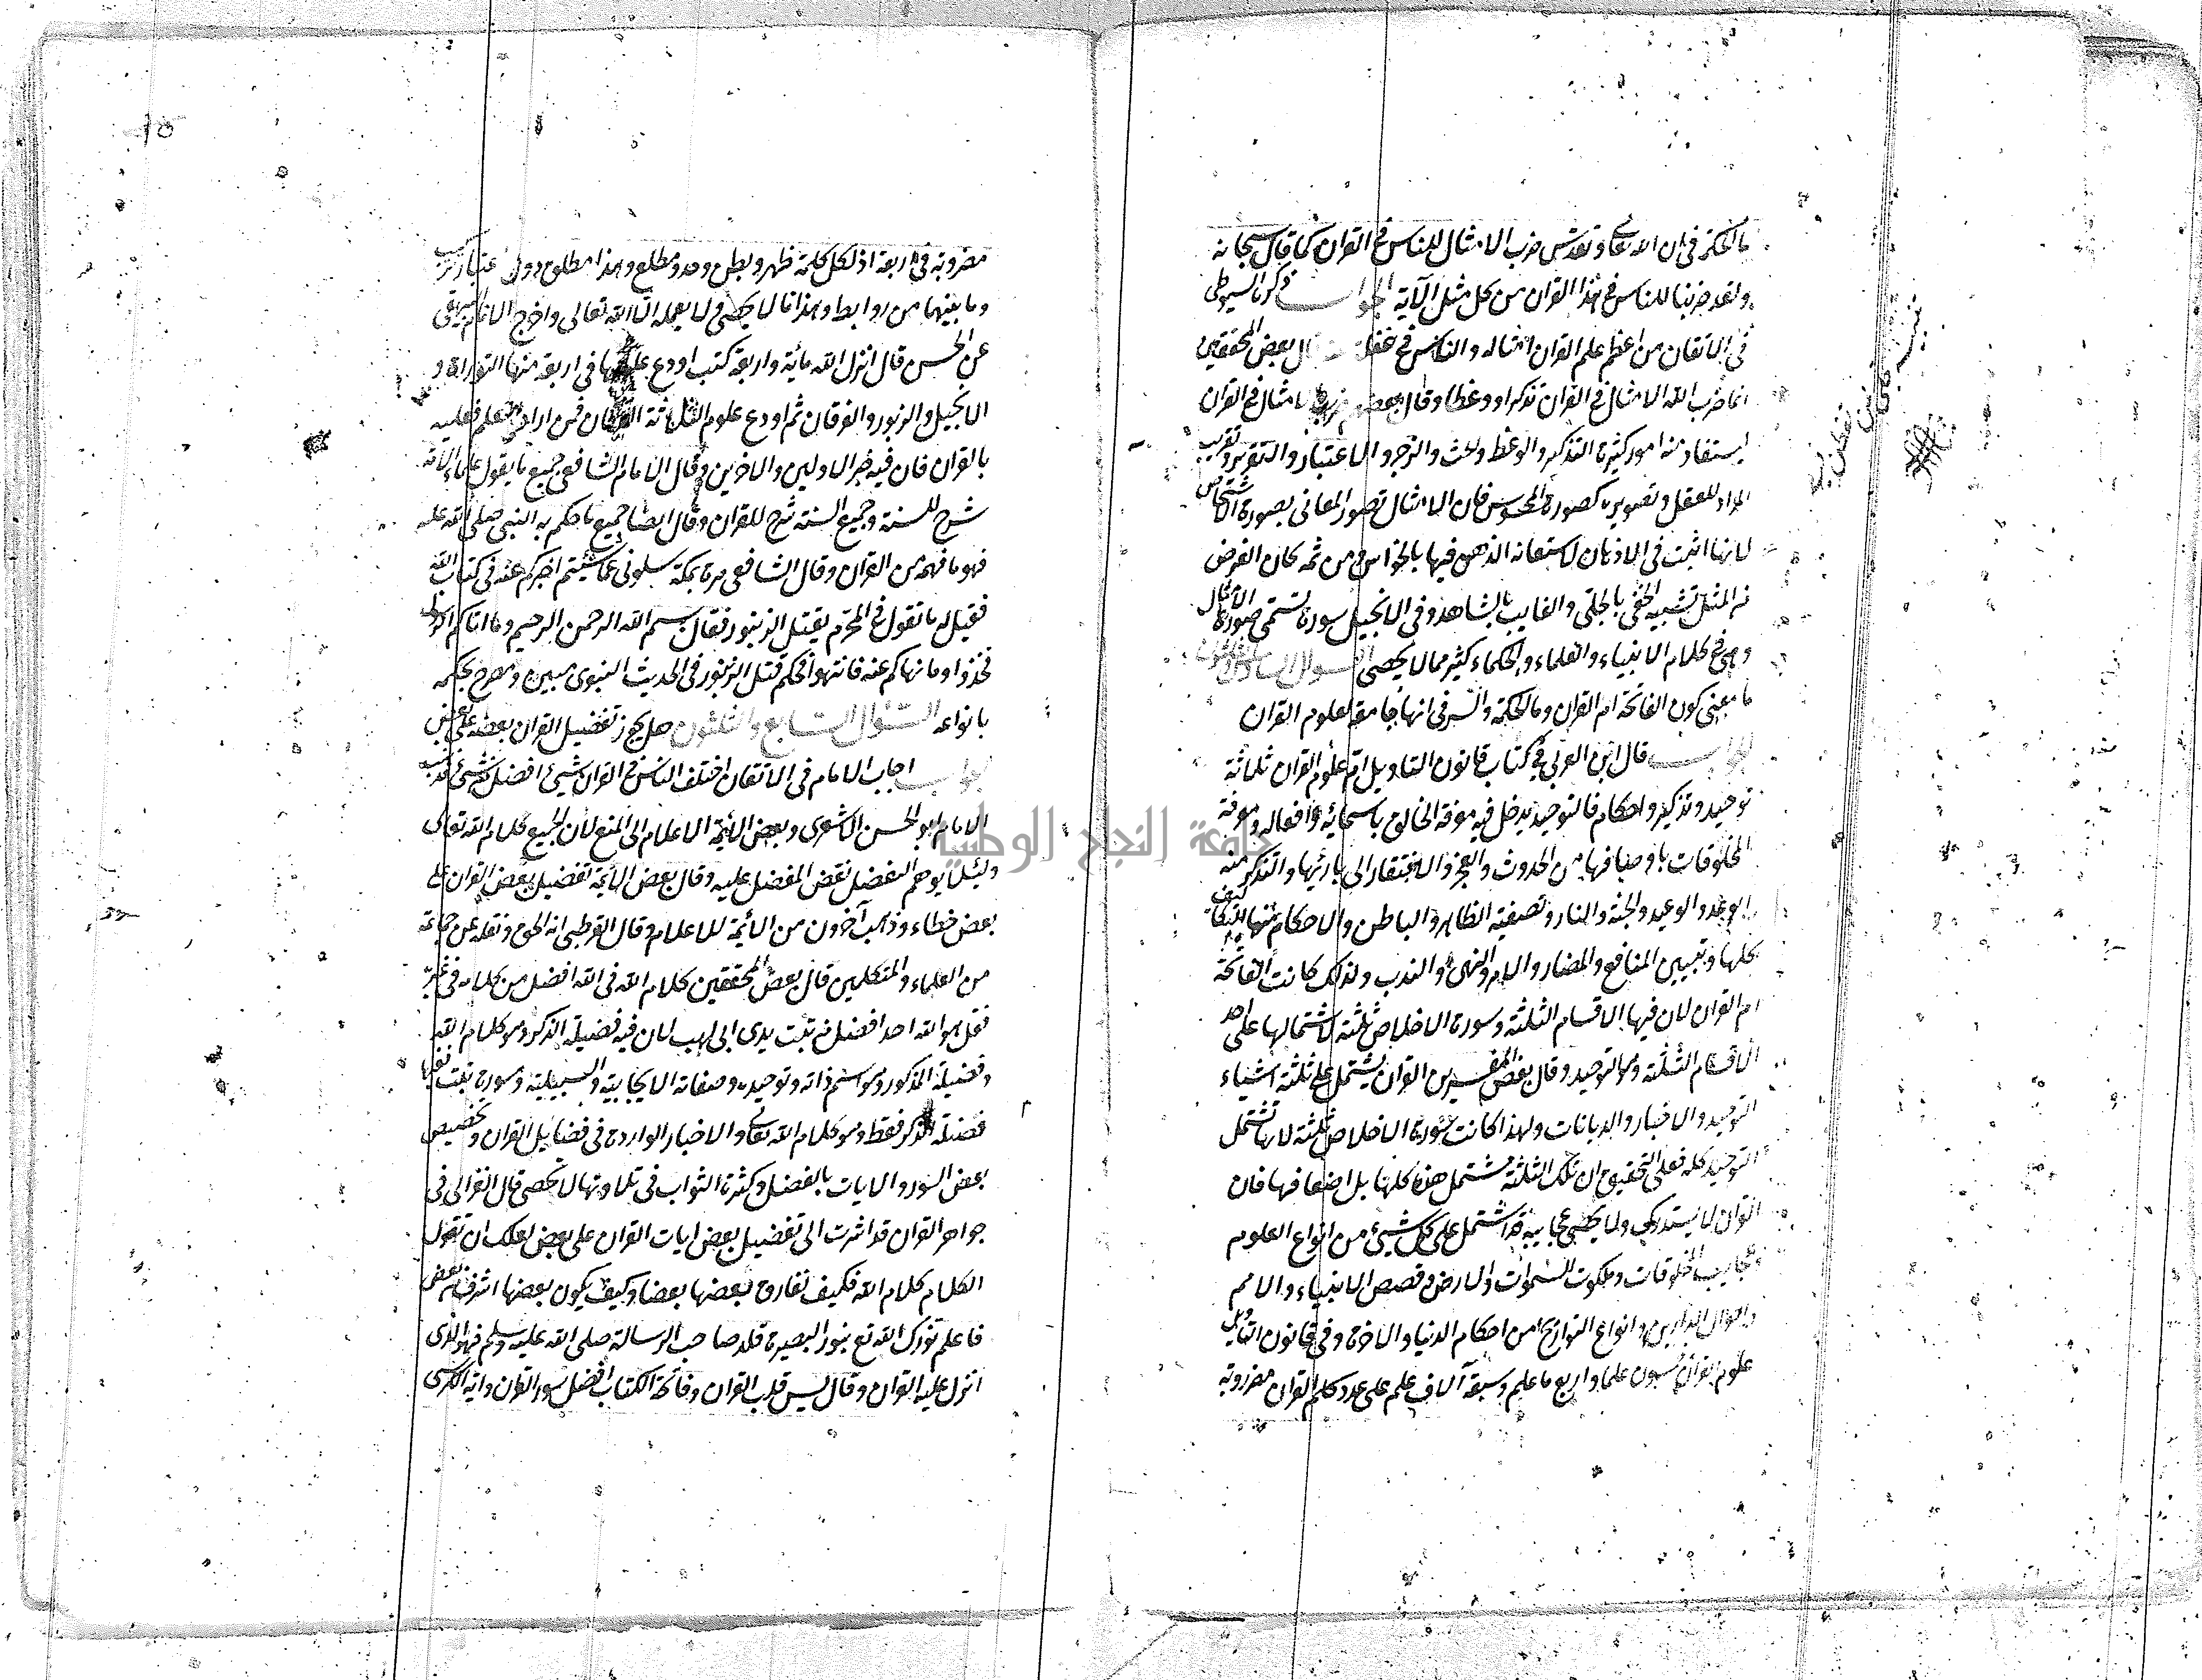 ما الحكمة في ان الله تعالى وتقدس ضرب الامثال للناس في القران كما قال سبحانه
ولقد ضربنا للناس في هذا القران من كل مثل الآية الجواب ذكره السيوطي
في الاتقان من اعظم علم القران امثاله والناس في غفلة قال بعض المحققين
انما ضرب الله الامثال في القران تذكيرا ووعظا وقال بعضهم ضرب الامثال في القران
يستفاد منه امور كثيرة التذكير والوعظ والحث والزجر والاعتبار والتقرير وتقريب
المراد للعقل وتصويره كصورة المحسوس فان الامثال تصور المعاني بصورة الاشخاص
لانها اثبت في الاذهان لاستعانة الذهن فيها بالحواس ومن ثمه كان الغرض
من المثل تشبيه الخفي بالجلي والغايب بالشاهد وفي الانجيل سورة تسمى سورة الامثال
وهي في كلام الانبياء والعلماء والحكماء كثير مما لا يحصى السوال السادس والثلاثون
ما معنى كون الفاتحة ام القران وما الحكمة والسر في انها جامعة لعلوم القران
الجواب قال ابن العربي في كتاب قانون التاويل ام علوم القران ثلاثة
توحيد وتذكير واحكام فالتوحيد يدخل فيه معرفة الخالق باسمائه وافعاله ومعرفة
المخلوقات باوصافها من الحدوث والعجز والافتقار الى بارئها والتذكير منه
الوعد والوعيد والجنة والنار وتصفية الظاهر والباطن والاحكام منها التكاليف
كلها وتبيين المنافع والمضار والامر والنهي والندب ولذلك كانت الفاتحة
ام القران لان فيها الاقسام الثلثة وسورة الاخلاص ثلثه لاشتمالها على احد
الاقسام الثلثة وهو التوحيد وقال بعض المفسرين القران يشتمل على ثلثة اشياء
التوحيد والاخبار والديانات ولهذا كانت سورة الاخلاص ثلثه لانها تشتمل
التوحيد كله فعلى التحقيق ان تلك الثلثة تشتمل هذه كلها بل اضعافها فان
القران لا يستدرك ولا يحصى عجايبه قد اشتمل على كل شيئ من انواع العلوم
وعجايب المخلوقات وملكوت السموات والارض وقصص الانبياء والامم
واحوال الدارين وانواع التواريخ من احكام الدنيا والاخرة وفي قانون التاويل
علوم القران خمسون علما واربع ماعلم وسبعة آلاف علم على عدد كلم القران مضروبة
مضروبة في اربعة اذ لكل كلمة ظهر وبطن وحد ومطلع وهذا مطلق دون اعتبار تركيب
وما بينهما من روابط وهذا ما لا يحصى ولا يعلمه الا الله تعالى واخرج الامام البيهقي
عن الحسن قال انزل الله مائة واربعة كتب اودع علومها في اربعة منها التوراة و
الانجيل والزبور والفرقان ثم اودع علوم الثلاثة الفرقان فمن اراد العلم فعليه
بالقران فان فيه خبر الاولين والاخرين وقال الامام الشافعي جميع ما يقول علماء الامة
شرح للسنة وجميع السنة شرح للقران وقال ايضا جميع ما حكم به النبي صلى الله عليه
فهو ما فهمه من القران وقال الشافعي مرة بمكة سلوني عما شئتم اخبركم عنه في كتاب الله
فقيل له ما تقول في المحرم يقتل الزنبور فقال بسم الله الرحمن الرحيم وما اتاكم الرسول
فخذوا وما نهاكم عنه فانتهوا فحكم قتل الزنبور في الحديث النبوي مبين ومصرح بحكمه
بانواعه السئوال السابع والثلثون هل يجوز تفضيل القران بعضه على بعض
الجواب اجاب الامام في الاتقان اختلف الناس في القران شيئ افضل من شيئ فذهب
الامام ابو الحسن الاشعري وبعض الائمة الاعلام الى المنع لان الجميع كلام الله تعالى
ولئلا يوهم التفضيل نقض المفضل عليه وقال بعض الائمة تفضيل بعض القران على
بعض خطاء وذهب آخرون من الائمة الاعلام وقال القرطبي انه الحق ونقله عن جماعة
من العلماء والمتكلمين قال بعض المحققين كلام الله في الله افضل من كلامه في غيره
فقل هو الله احد افضل من تبت يدى ابي لهب لان فيه فضيلة الذكر وهو كلام الله
وفضيلة المذكور وهو اسم ذاته وتوحيده وصفاته الايجابية والسلبية وسورة تبت فيها
فضيلة الذكر فقط وهو كلام الله تعالى والاخبار الواردة في فضايل القران وتخصيص
بعض السور والايات بالفضل وكثرة الثواب في تلاوتها لا تحصى قال الغزالي في
جواهر القران قد اشرت الى تفضيل بعض ايات القران على بعض لعلك ان تقول
الكلام كلام الله فكيف تفارق بعضها بعضا وكيف يكون بعضها اشرف من بعض
فاعلم نورك الله تع بنور البصيرة قلد صاحب الرسالة صلى الله عليه وسلم فهو الذي
انزل عليه القران وقال يس قلب القران وفاتحة الكتاب افضل سور القران واية الكرسي
جامعة النجاح الوطنية